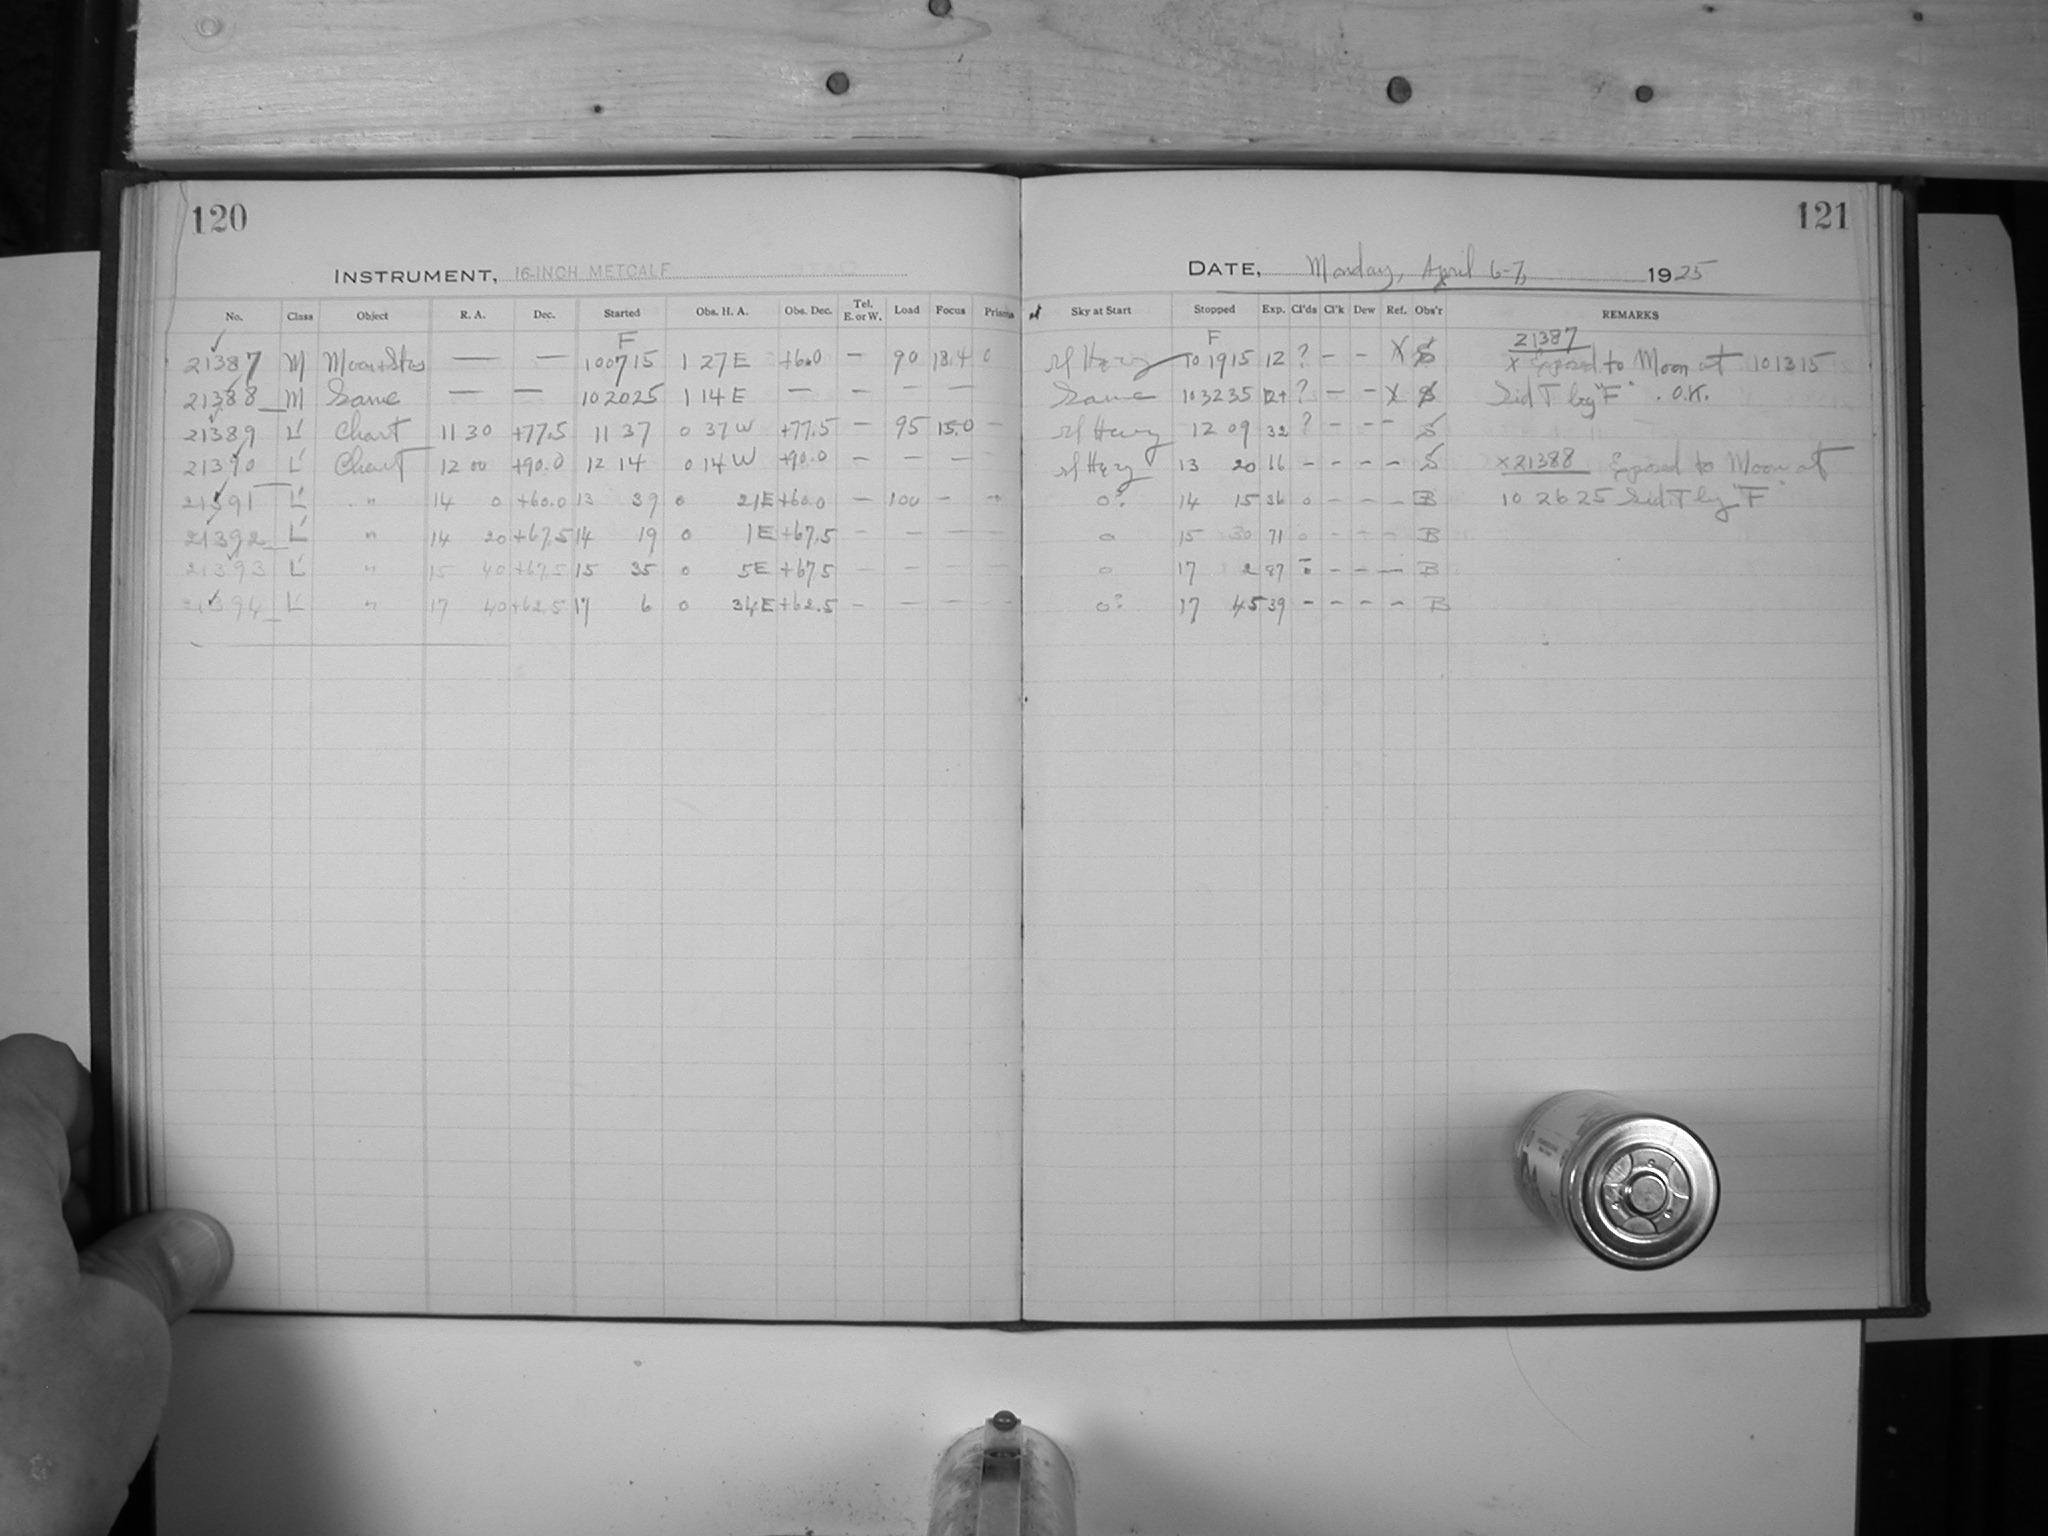 120
INSTRUMENT, 16-INCH METCALF
No. Class Object R. A. Dec. Started Obs. H. A. Obs. Dec. Tel. E. or W. Load Focus Prisms
F
21387 M Moon+Strs — — 10 07 15 1 27 E +6.0 — 90 18.4 0
21388 M Same — — 10 20 25 1 14 E — — — — —
21389 L Chart 11 30 +77.5 11 37 0 37 W +77.5 — 95 15.0 —
21390 L Chart 12 00 +90.0 12 14 0 14 W +90.0 — — — —
21391 L " 14 0 +60.0 13 39 0 21 E +60.0 — 100 — —
21392 L " 14 20 +67.5 14 19 0 1 E +67.5 — — — —
21393 L " 15 40 +67.5 15 35 0 5 E +67.5 — — — —
21394 L " 17 40 +62.5 17 6 0 34 E +62.5 — — — —
121
DATE, Monday, April 6-7, 1925
Sky at Start Stopped Exp. Cl'ds Cl'k Dew Ref. Obs'r REMARKS
F 21387
10 19 15 12 ? — — X S x Exposed to Moon at 10 13 15
Same 10 32 35 12+ ? — — X S Sid T by "F". O.K.
12 09 32 ? — — — S
13 20 66 — — — — S x21388 Exposed to Moon at
0? 14 15 36 0 — — — B 10 26 25 Sid T by "F"
0 15 30 71 0 — — — B
0 17 2 87 — — — B
0? 17 45 39 — — — — B